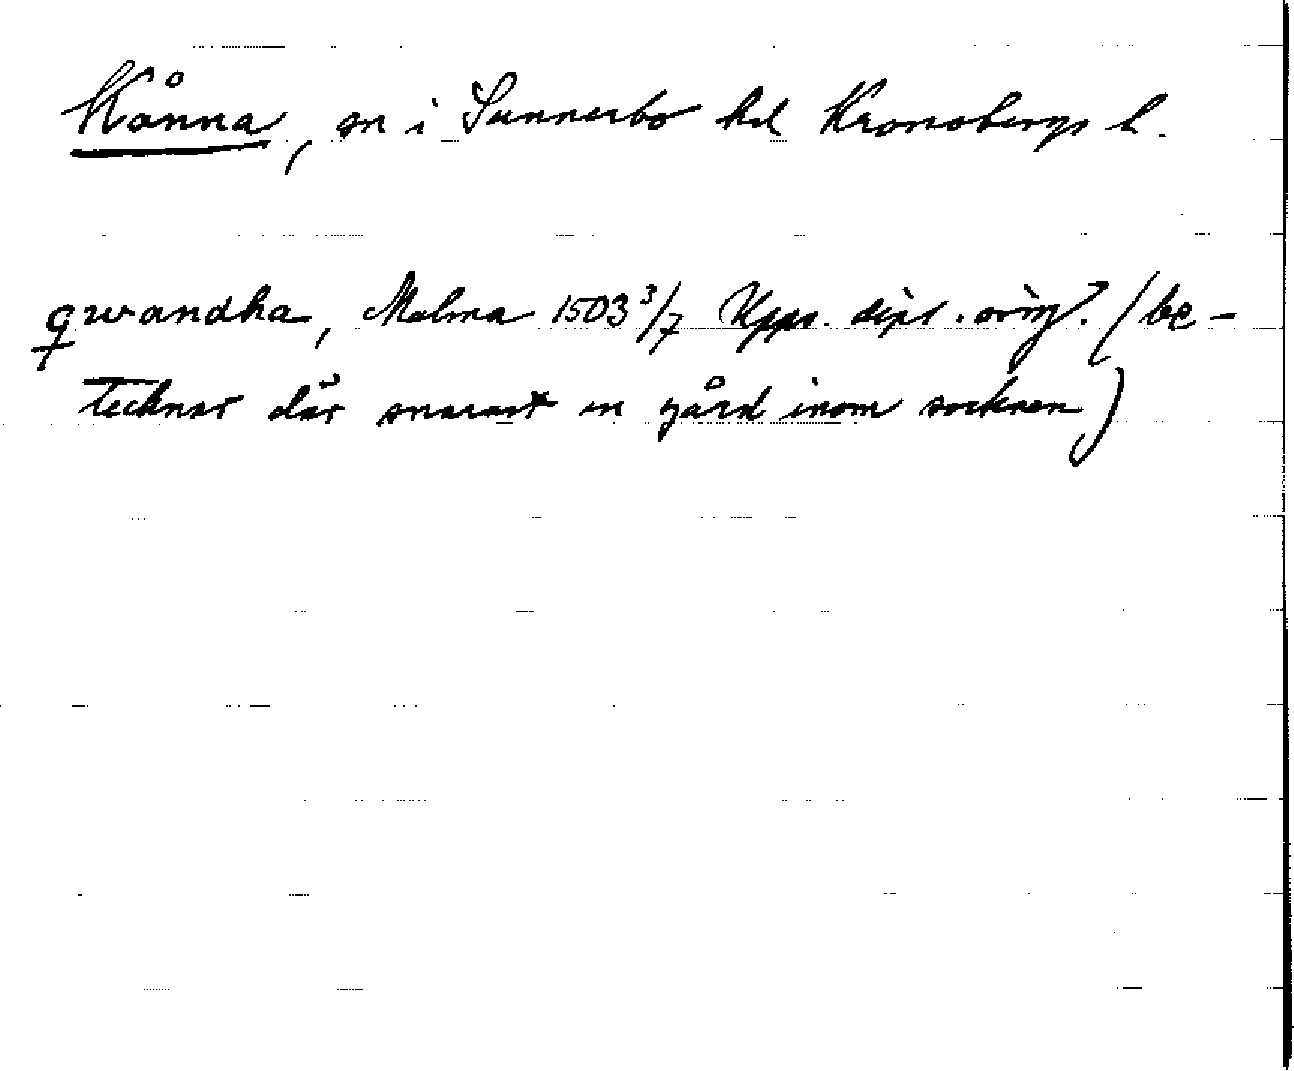 Kånna, sn i Sunnerbo hd Kronobergs l.
qwandha, Malma 1503 3/7 Upps. dipl. orig. (be-
tecknar där snarast en gård inom socknen)